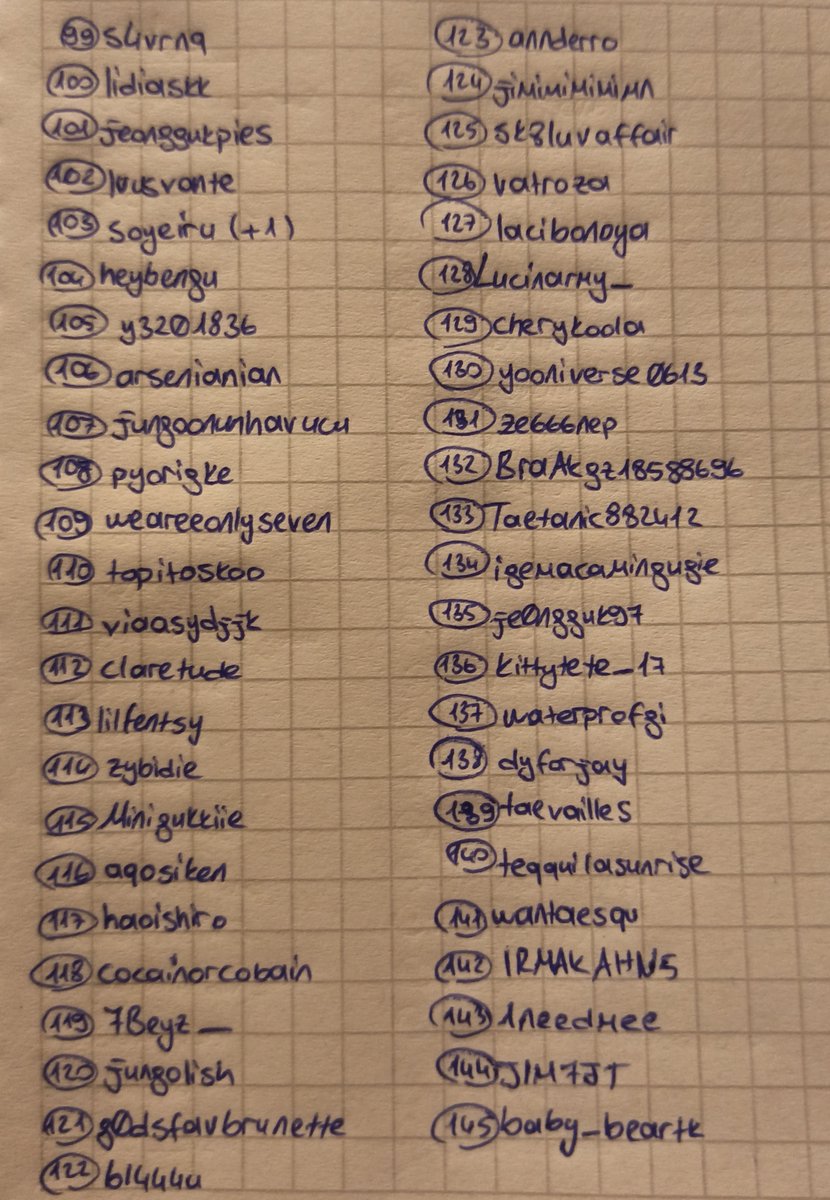 99 s4vrnq
100 lidiaskk
101 jeonggukpies
102 luusvante
103 soyeiru (+1)
104 heybengu
105 y3201836
106 arsenianian
107 jungoonunhavucu
108 pyorigke
109 weareeonlyseven
110 tapitoskoo
111 viaasydjjk
112 claretude
113 lilfentsy
114 zybidie
115 Minigukkiie
116 aqosiken
117 haoishiro
118 cocainorcobain
119 7Beyz_
120 jungolish
121 g0dsfavbrunette
122 bl444u
123 annderro
124 jimimimimimn
125 sk8luvaffair
126 vatroza
127 lacibonoya
128 Lucinarmy_
129 cherykoola
130 yooniverse0613
131 ze666nep
132 BraAkgz18588696
133 Taetanic882412
134 igemacamingugie
135 je0ngguk97
136 kittytete_17
137 waterprofgi
138 dyforjay
139 taevailles
140 teqquilasunrise
141 wantaesqu
142 IRMAKAHN5
143 1needmee
144 JIM7JT
145 baby_beartk